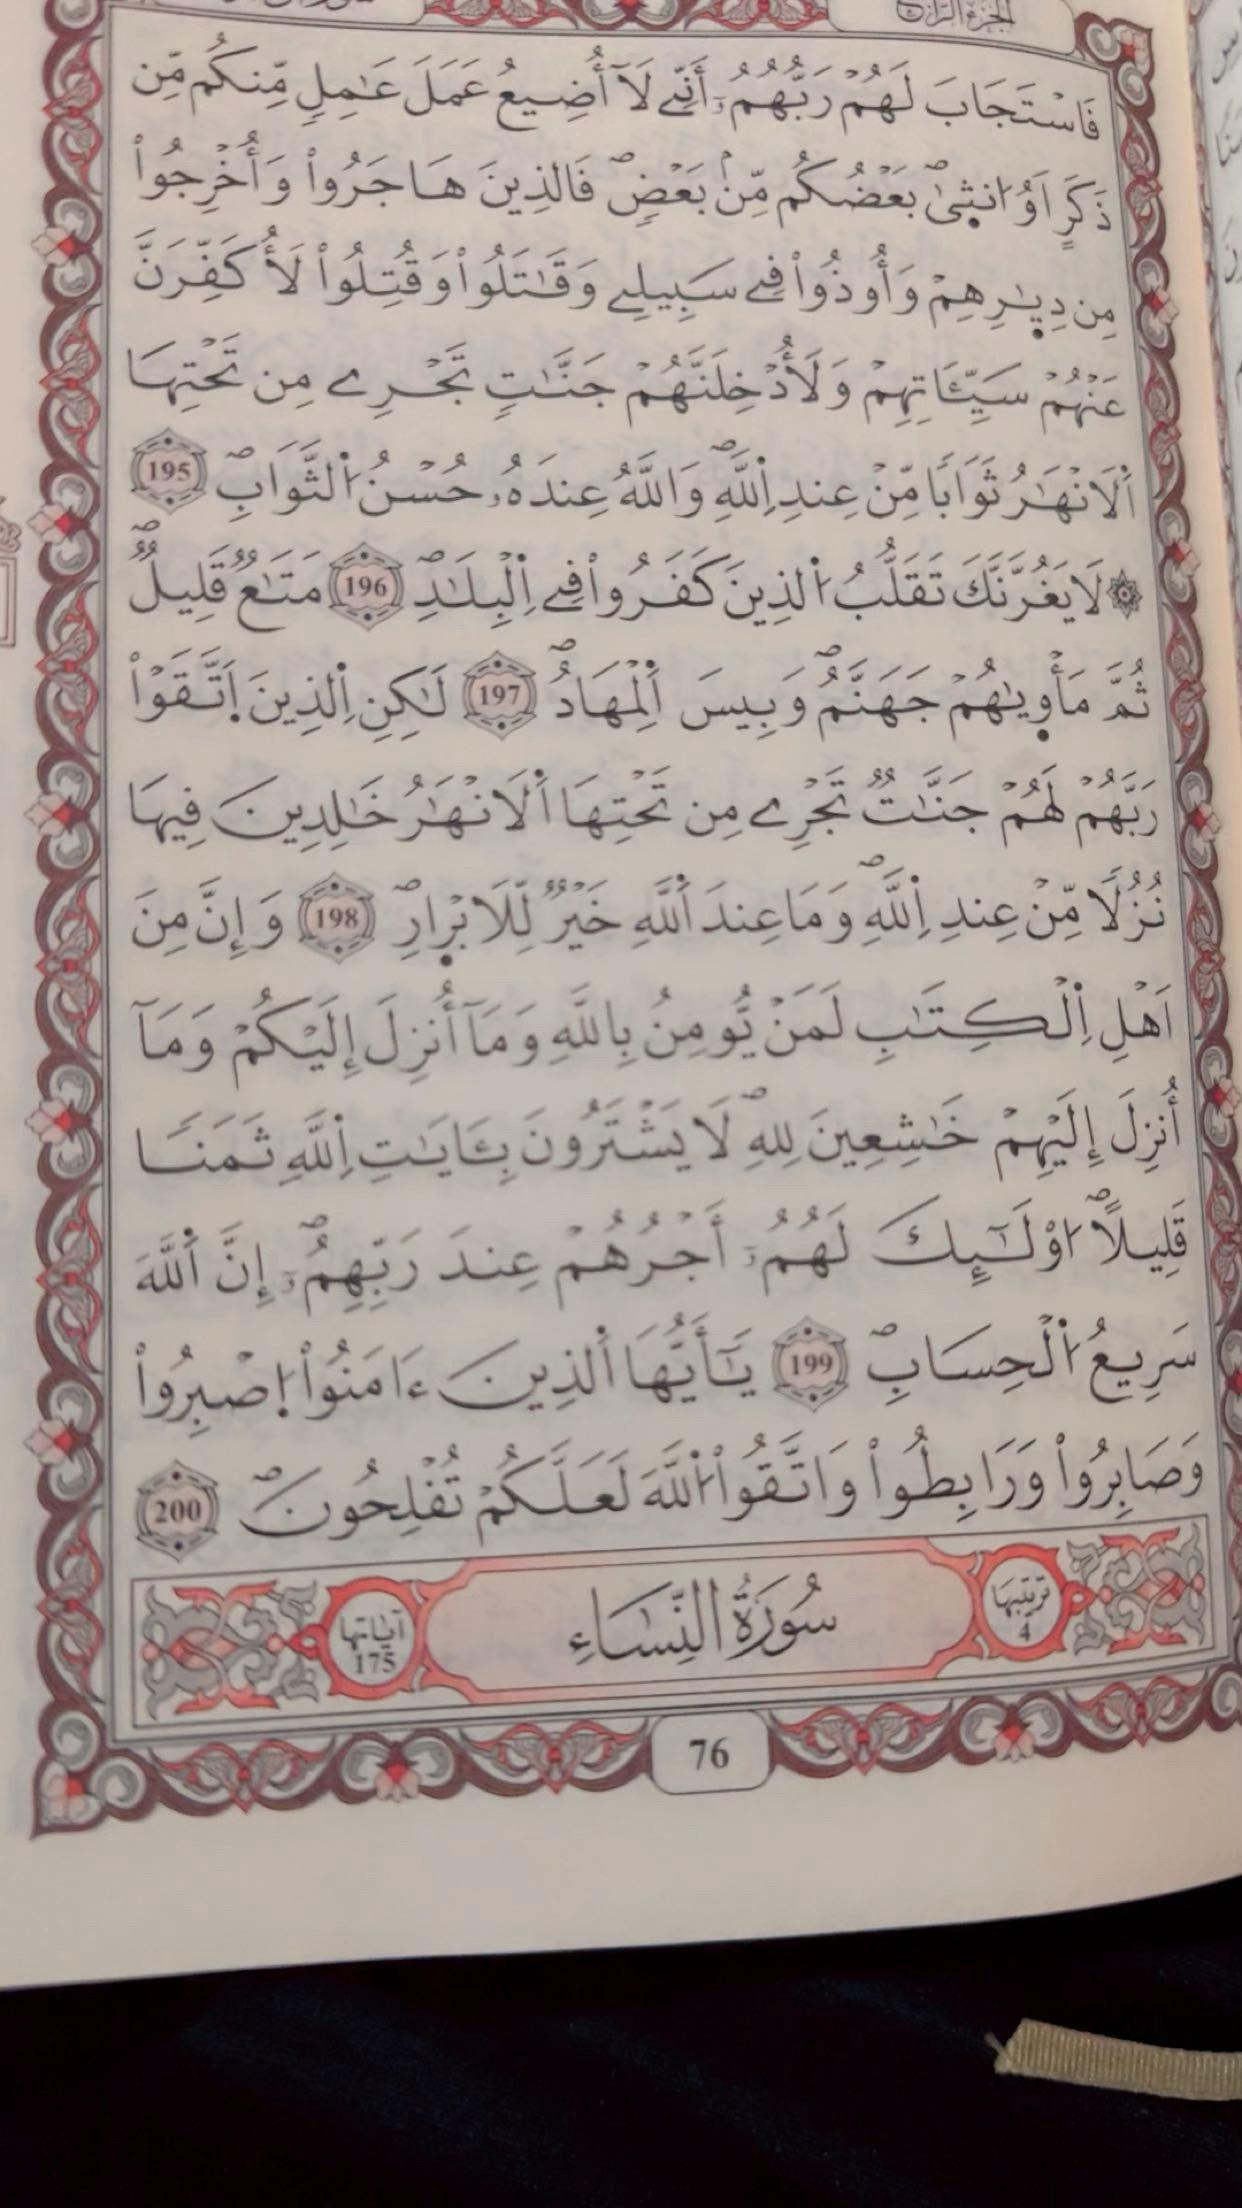 الجزء الرابع
فَاسْتَجَابَ لَهُمْ رَبُّهُمُۥٓ أَنِّے لَآ أُضِيعُ عَمَلَ عَٰمِلٖ مِّنكُم مِّن
ذَكَرٍ اَوُ ا۟نث۪ىٰۖ بَعْضُكُم مِّنۢ بَعْضٖۖ فَالذِينَ هَاجَرُوا۟ وَأُخْرِجُوا۟
مِن دِيٰ۪رِهِمْ وَأُوذُوا۟ فِے سَبِيلِے وَقَٰتَلُوا۟ وَقُتِلُوا۟ لَأُكَفِّرَنَّ
عَنْهُمْ سَيِّـَٔاتِهِمْ وَلَأُدْخِلَنَّهُمْ جَنَّٰتٖ تَجْرِے مِن تَحْتِهَا
اَ۬لَانْهَٰرُ ثَوَابٗا مِّنْ عِندِ اِ۬للَّهِۖ وَاللَّهُ عِندَهُۥ حُسْنُ اُ۬لثَّوَابِۖ 195
۞ لَا يَغُرَّنَّكَ تَقَلُّبُ اُ۬لذِينَ كَفَرُوا۟ فِے اِ۬لْبِلَٰدِۖ 196 مَتَٰعٞ قَلِيلٞۖ
ثُمَّ مَأْو۪يٰهُمْ جَهَنَّمُۖ وَبِيسَ اَ۬لْمِهَادُۖ 197 لَٰكِنِ اِ۬لذِينَ اَ۪تَّقَوْا۟
رَبَّهُمْ لَهُمْ جَنَّٰتٞ تَجْرِے مِن تَحْتِهَا اَ۬لَانْهَٰرُ خَٰلِدِينَ فِيهَا
نُزُلٗا مِّنْ عِندِ اِ۬للَّهِۖ وَمَا عِندَ اَ۬للَّهِ خَيْرٞ لِّلَابْر۪ارِۖ 198 وَإِنَّ مِنَ
اَهْلِ اِ۬لْكِتَٰبِ لَمَنْ يُّومِنُ بِاللَّهِ وَمَآ أُنزِلَ إِلَيْكُمْ وَمَآ
أُنزِلَ إِلَيْهِمْ خَٰشِعِينَ لِلهِۖ لَا يَشْتَرُونَ بِـَٔايَٰتِ اِ۬للَّهِ ثَمَنٗا
قَلِيلاًۖ ا۟وْلَٰٓئِكَ لَهُمُۥٓ أَجْرُهُمْ عِندَ رَبِّهِمُۥٓۖ إِنَّ اَ۬للَّهَ
سَرِيعُ اُ۬لْحِسَابِۖ 199 يَٰٓأَيُّهَا اَ۬لذِينَ ءَامَنُوا۟ اُ۪صْبِرُوا۟
وَصَابِرُوا۟ وَرَابِطُوا۟ وَاتَّقُوا۟ اُ۬للَّهَ لَعَلَّكُمْ تُفْلِحُونَۖ 200
ترتيبها 4 سُورَةُ النِّسَاءِ آياتها 175
76